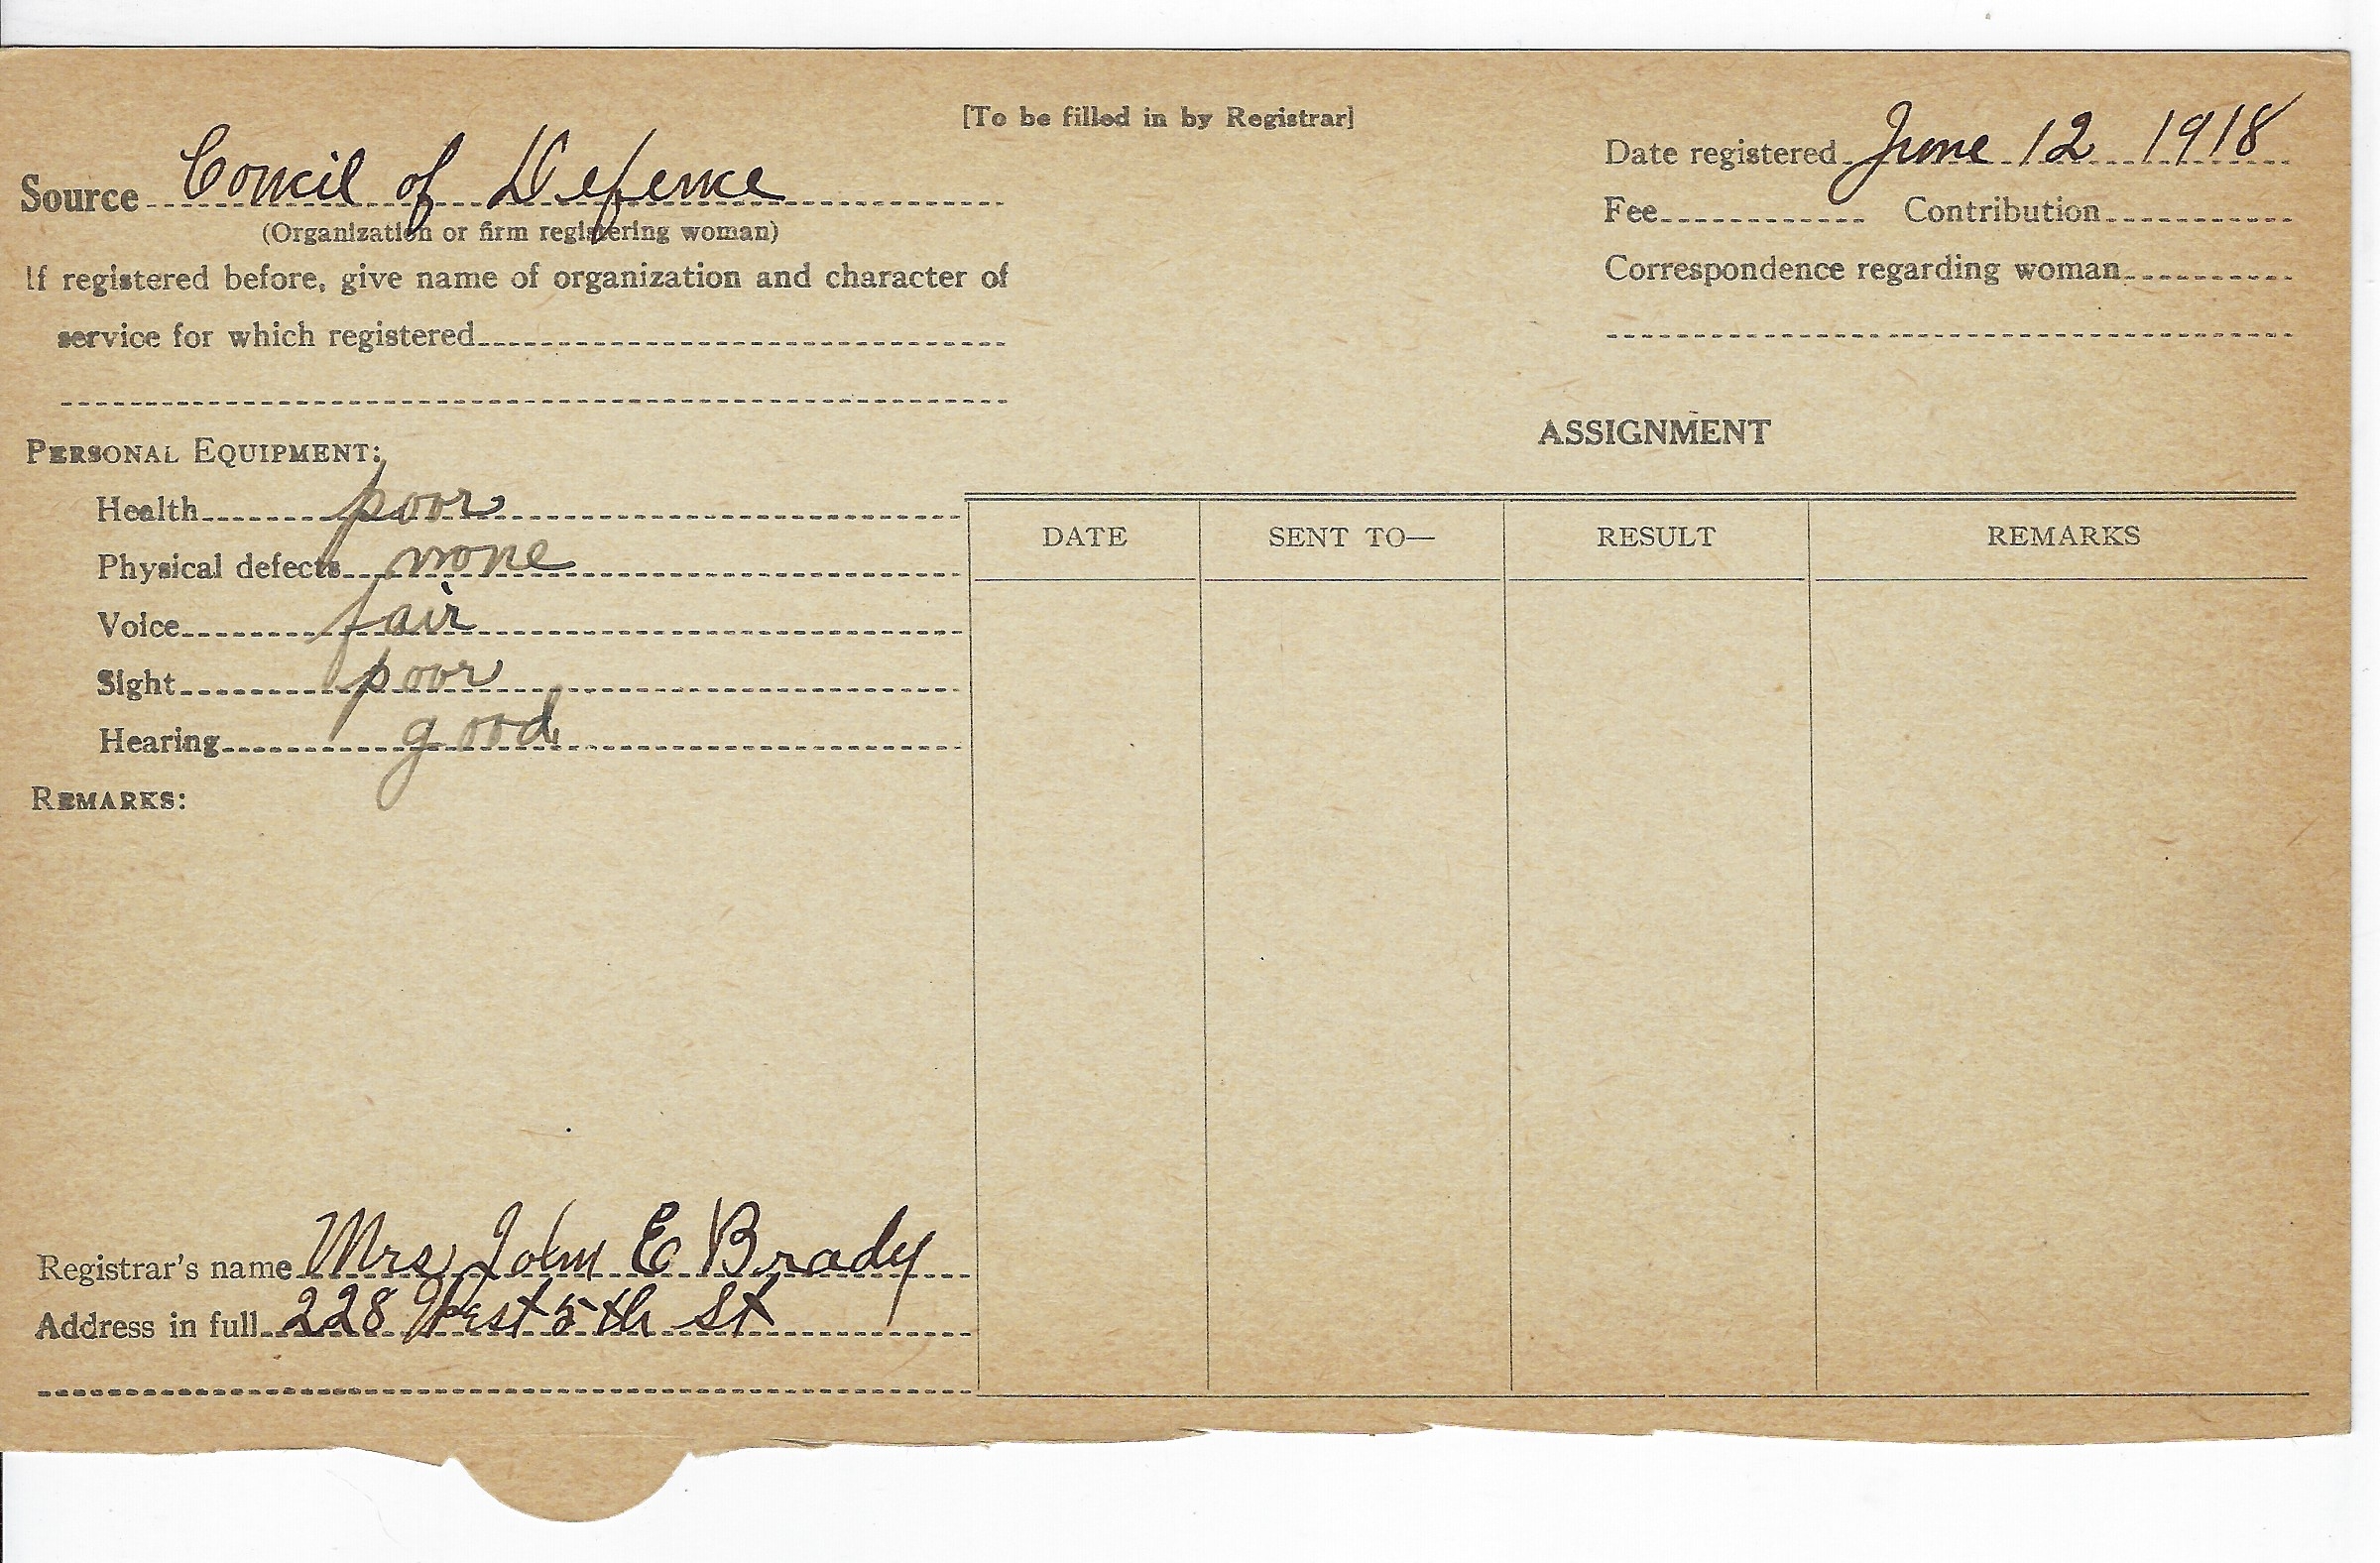 [To be filled in by Registrar]
Source Concil of Defence
(Organization or firm registering woman)
If registered before, give name of organization and character of
service for which registered
Date registered June 12 1918
Fee Contribution
Correspondence regarding woman
PERSONAL EQUIPMENT:
Health poor
Physical defects none
Voice fair
Sight poor
Hearing good
REMARKS:
ASSIGNMENT
DATE SENT TO— RESULT REMARKS
Registrar's name Mrs John E Brady
Address in full 228 West 5th St